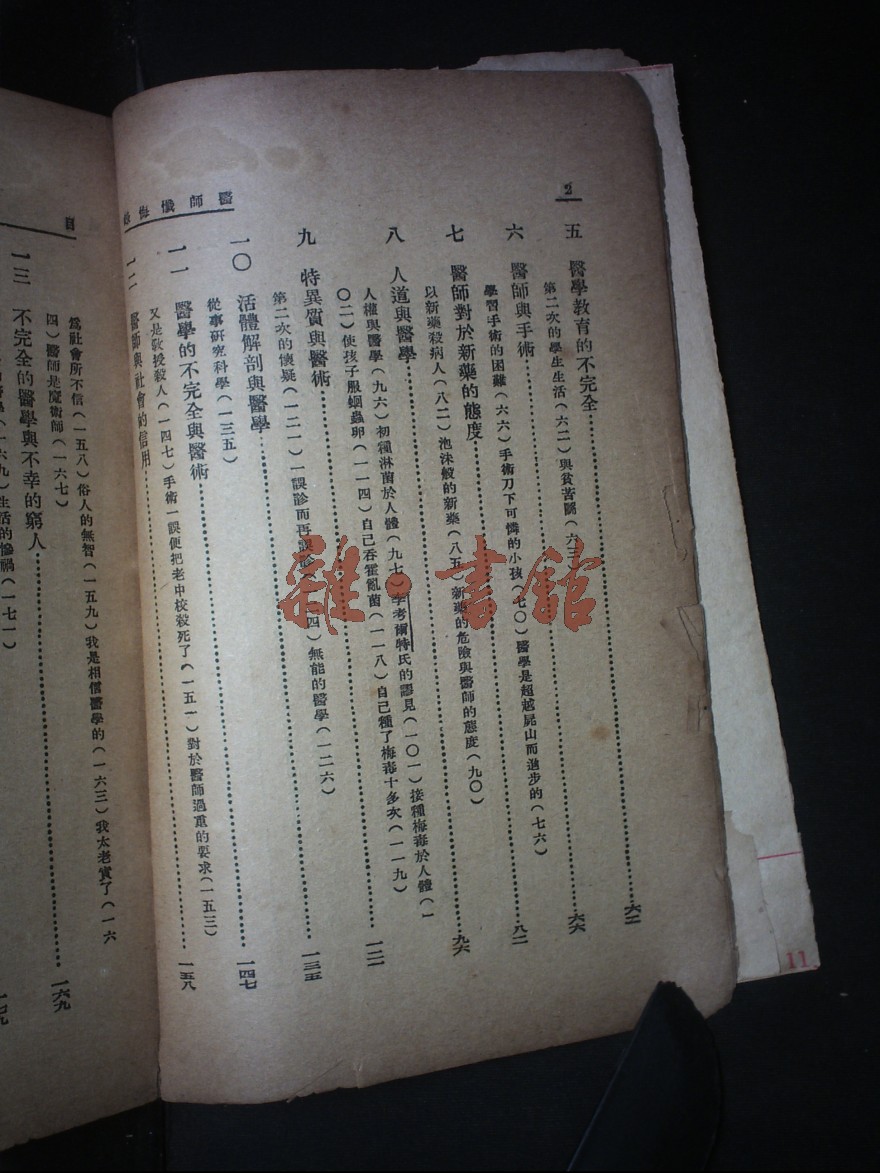 2
醫師懺悔
五 醫學教育的不完全……六二
第二次的學生生活(六二)與貧苦鬭(六三)
六 醫師與手術……六六
學習手術的困難(六六)手術刀下可憐的小孩(七〇)醫學是超越屍山而進步的(七六)
七 醫師對於新藥的態度……八二
以新藥殺病人(八二)泡沫般的新藥(八五)新藥的危險與醫師的態度(九〇)
八 人道與醫學……九六
人權與醫學(九六)初種淋菌於人體(九七)李考爾特氏的謬見(一〇一)接種梅毒於人體(一
〇二)使孩子服蛔蟲卵(一一四)自己吞霍亂菌(一一八)自己種了梅毒十多次(一一九)
九 特異質與醫術……一二一
第二次的懷疑(一二一)一誤診而再誤診(一二四)無能的醫學(一二六)
一〇 活體解剖與醫學……一三五
從事研究科學(一三五)
一一 醫學的不完全與醫術……一四七
又是教授殺人(一四七)手術一誤便把老中校殺死了(一五一)對於醫師過重的要求(一五三)
一二 醫師與社會的信用……一五八
爲社會所不信(一五八)俗人的無智(一五九)我是相信醫學的(一六三)我太老實了(一六
四)醫師是魔術師(一六七)
一三 不完全的醫學與不幸的窮人……一六九
醫學(一六九)生活的慘禍(一七一)
雜·書館
11